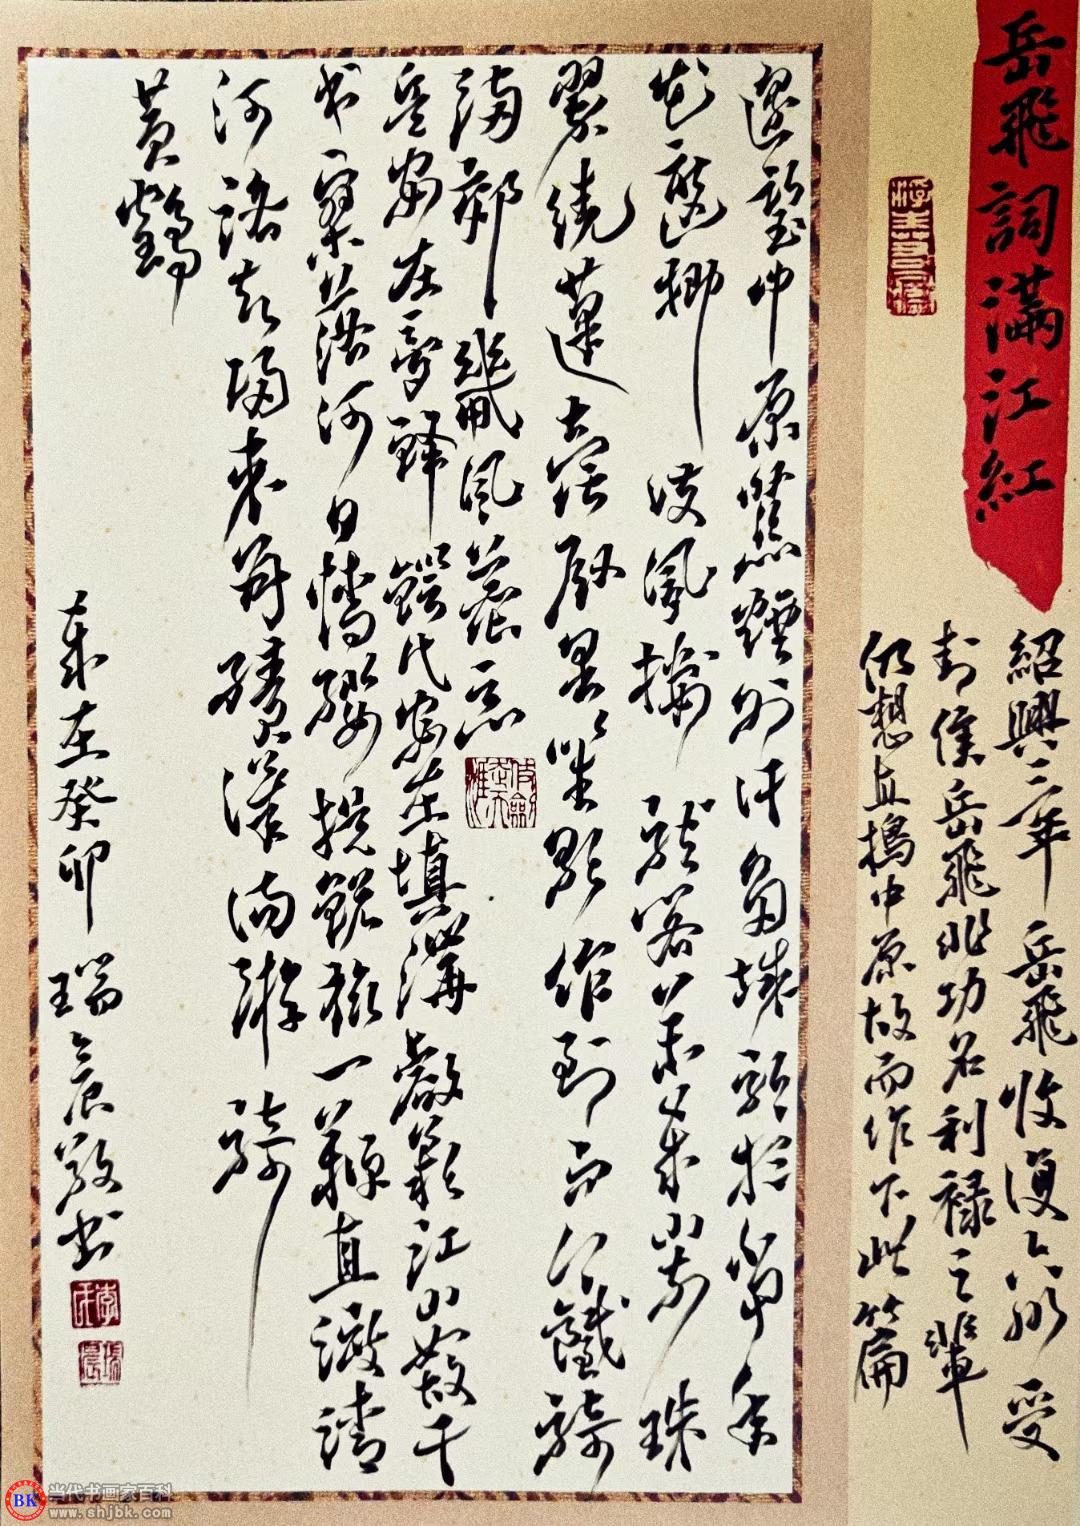 岳飛詞滿江紅
紹興三年岳飛收復六郡受
封侯岳飛非功名利禄之輩
仍想直搗中原故而作下此篇
遥望中原荒煙外許多城郭想當年
花遮柳護鳳樓龍閣萬歲山前珠
翠繞蓬壺殿裏笙歌作到而今鐵騎
滿郊畿風塵惡
兵安在膏鋒鍔民安在填溝壑嘆江山如故千
村寥落何日請纓提銳旅一鞭直渡清
河洛却歸來再續漢陽遊騎
黃鶴
歲在癸卯瑞晨敬書
BK
当代书画家百科
www.shjbk.com